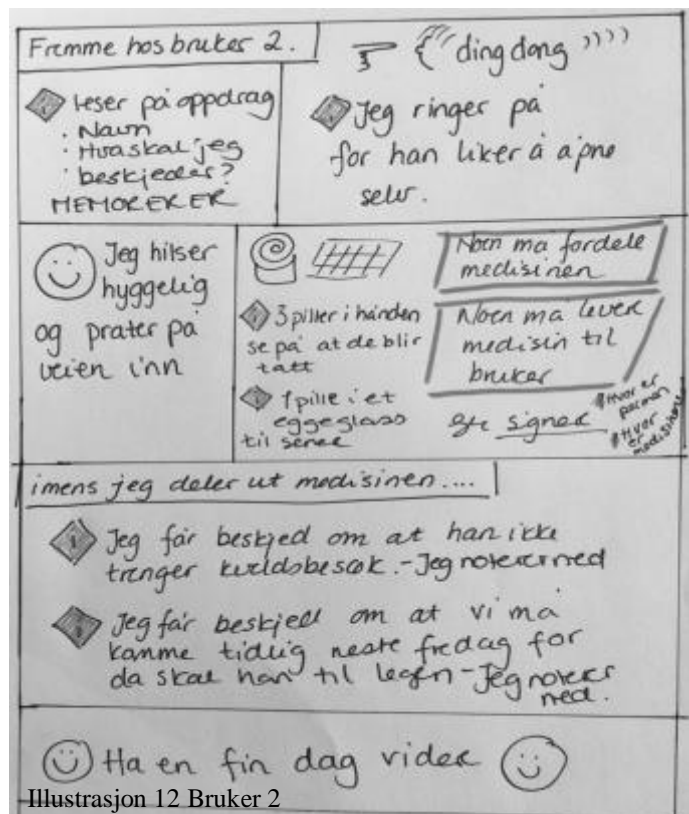 Fremme hos bruker 2.
ding dong
leser på oppdrag
· Navn
· Hva skal jeg
· beskjeder?
MEMORERER
Jeg ringer på
for han liker å åpne
selv.
Jeg hilser
hyggelig
og prater på
veien inn
3 piller i hånden
se på at de blir
tatt
1 pille i et
eggeglass
til senere
Noen må fordele
medisinen
Noen må lever
medisin til
bruker
signer
Hvor er
permen
Hvor
er
imens jeg deler ut medisinen....
Jeg får beskjed om at han ikke
trenger kveldsbesøk.-Jeg noterer ned
Jeg får beskjed om at vi må
komme tidlig neste fredag for
da skal han til legen-Jeg noterer
ned.
Ha en fin dag videre
Illustrasjon 12 Bruker 2